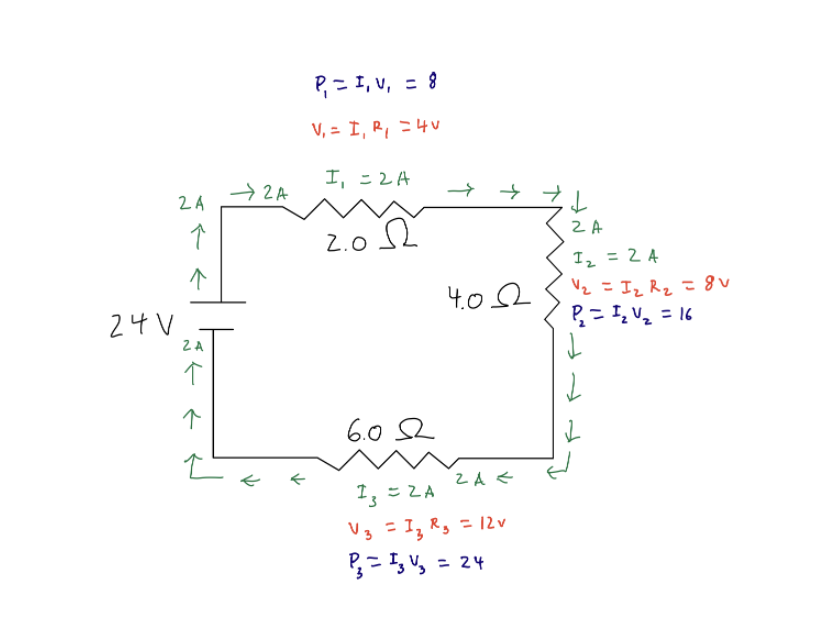 P₁ = I₁ V₁ = 8
V₁ = I₁ R₁ = 4V
I₁ = 2A
2A
→ 2A
→ → → ↓
↑
↑
2.0 Ω
2A
I₂ = 2A
V₂ = I₂ R₂ = 8V
P₂ = I₂ V₂ = 16
4.0 Ω
24V
2A
↑
↑
↑
↓
↓
↓
6.0 Ω
← ←
I₃ = 2A
2A ←
V₃ = I₃ R₃ = 12V
P₃ = I₃ V₃ = 24